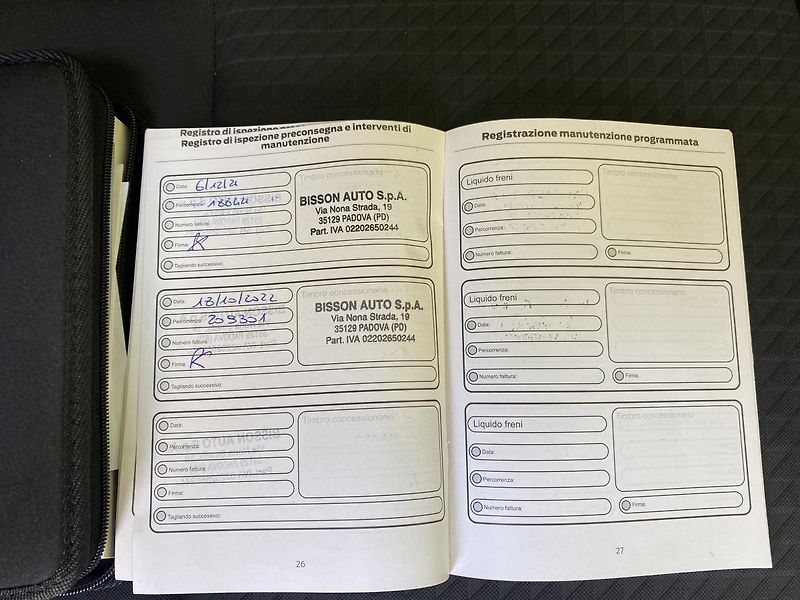 Registro di ispezione preconsegna e interventi di
manutenzione
Data: 6/12/21
Percorrenza:
Numero fattura:
Firma:
Tagliando successivo:
Timbro concessionario
BISSON AUTO S.p.A.
Via Nona Strada, 19
35129 PADOVA (PD)
Part. IVA 02202650244
Data: 18/10/2022
Percorrenza: 209301
Numero fattura:
Firma:
Tagliando successivo:
Timbro concessionario
BISSON AUTO S.p.A.
Via Nona Strada, 19
35129 PADOVA (PD)
Part. IVA 02202650244
Data:
Percorrenza:
Numero fattura:
Firma:
Tagliando successivo:
Timbro concessionario
26
Registrazione manutenzione programmata
Liquido freni
Data:
Percorrenza:
Numero fattura:
Timbro concessionario
Firma:
Liquido freni
Data:
Percorrenza:
Numero fattura:
Timbro concessionario
Firma:
Liquido freni
Data:
Percorrenza:
Numero fattura:
Timbro concessionario
Firma:
27